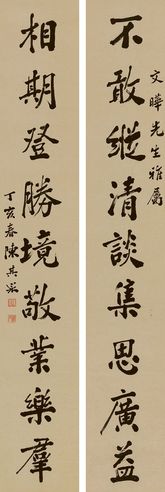 文曄先生雅屬
不敢縱清談集思廣益
相期登勝境敬業樂羣
丁亥春陳其采